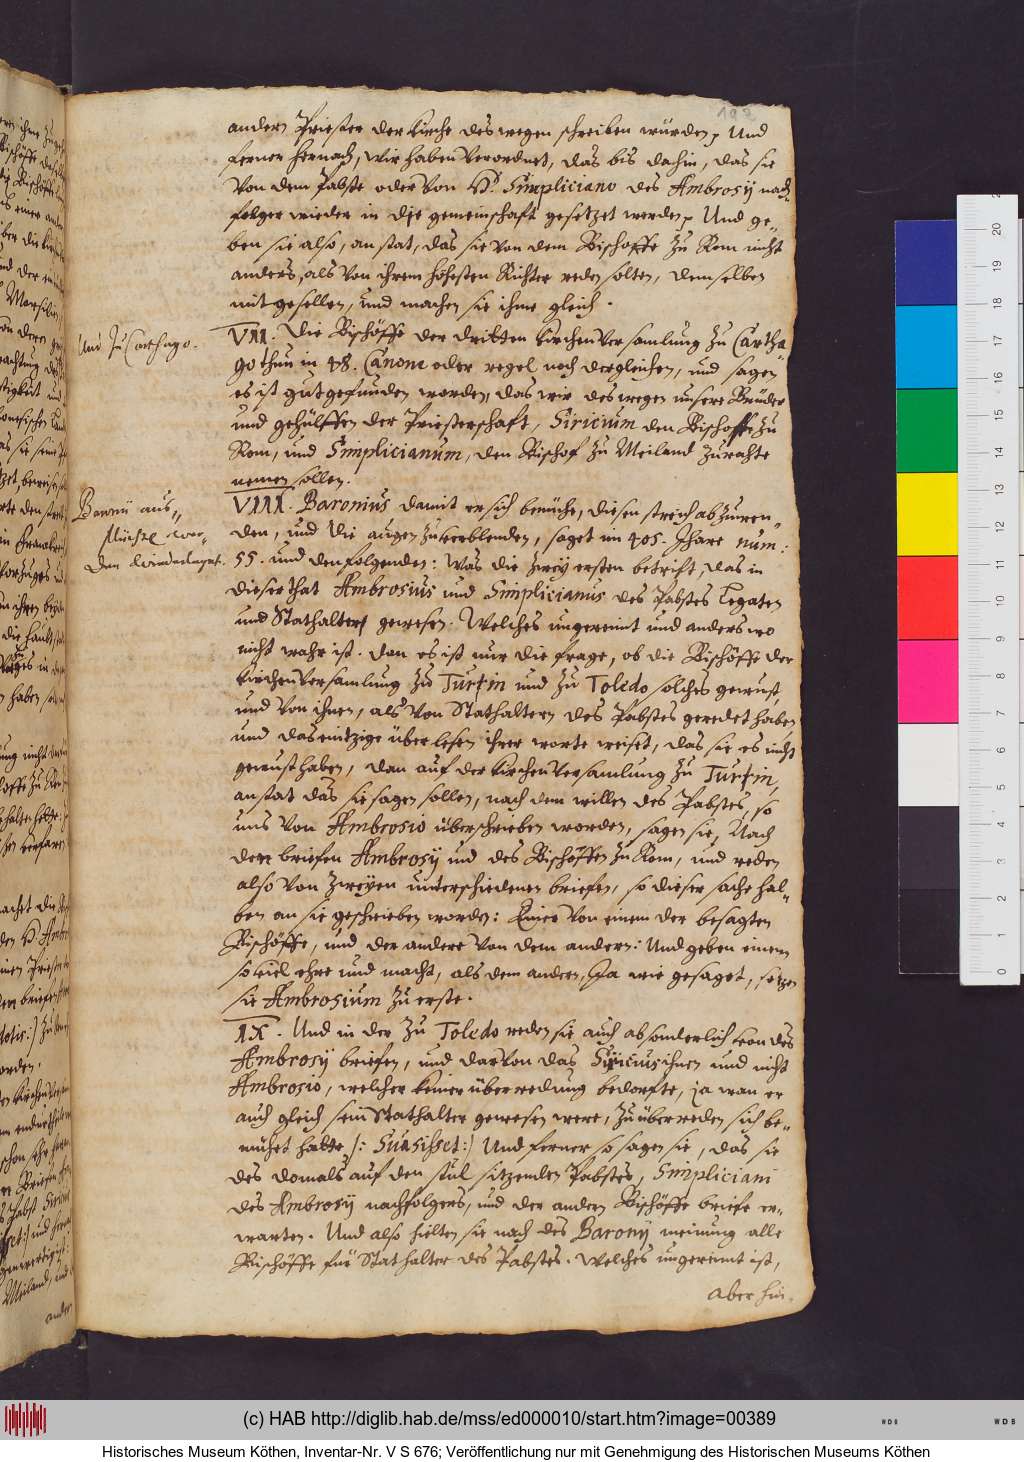 andern Priester der Kirche deswegen schreiben würden, Und
ferner hernach, Wir haben Verordnet, das bis dahin, das sie
Von dem Pabste oder Von H. Simpliciano des Ambrosij nach-
folger wieder in die gemeinschaft gesetzet werden, Und ge-
ben sie also, an stat, das sie Von dem Bischoffe zu Rom nicht
anders, als Von ihrem höhesten Richter reden solten, demselben
mit gesellen, und machen sie ihme gleich.
Und zu Carthago.
VII. Die Bischöffe der dritten Kirchen Versamlung zu Cartha
go thun in 48. Canone oder regel noch dergleichen, und sagen
es ist gut gefunden worden, das wir deswegen unsere Brüder
und gehülffen der Priesterschaft, Siricium den Bischoffe zu
Rom, und Simplicianum, den Bischof zu Meiland zu rahte
nemen sollen.
Baronii aus-
flüchte wer-
den wiederlaget.
VIII. Baronius damit er sich bemühe, diesen streich abzuwen-
den, und die augen zu verblenden, saget im 405. Jhare num:
55. und den folgenden: Was die zwey ersten betrift, das in
dieser that Ambrosius und Simplicianus des Pabstes Legaten
und Stathalter gewesen. Welches ungereimt und anderswo
nicht wahr ist. dan es ist nur die frage, ob die Bischöffe der
Kirchen Versamlung zu Turin und zu Toledo solches gewust,
und Von ihnen, als Von Stathaltern des Pabstes geredet haben,
und das einzige überlesen ihrer worte weiset, das sie es nicht
gewust haben, dan auf der Kirchen Versamlung zu Turin,
an stat das sie sagen sollen, nach dem willen des Pabstes, so
uns Von Ambrosio überschrieben worden, sagen sie, Nach
den briefen Ambrosij und des Bischöffen zu Rom, und reden
also Von zweyen unterschiedenen briefen, so dieser sache hal-
ben an sie geschrieben worden: Einer Von einem der besagten
Bischöffe, und der andere Von dem andern: Und geben einem
so viel ehre und macht, als dem andern, Ja wie gesaget, setzen
sie Ambrosium zu erste.
IX. Und in der zu Toledo reden sie auch absonderlich von des
Ambrosij briefen, und darvon das Siricius ihnen und nicht
Ambrosio, welcher keiner überredung bedorfte, ja wan er
auch gleich sein Stathalter gewesen were, zu überreden sich be-
mühet habte /: Suasisset:/ Und ferner so sagen sie, das sie
des domals auf den stul sitzenden Pabstes, Simpliciani
des Ambrosij nachfolgers, und der andern Bischöffe briefe er-
warten. Und also hielten sie nach des Baronij meinung alle
Bischöffe für Stathalter des Pabstes. welches ungereimt ist,
aber hin-
(c) HAB http://diglib.hab.de/mss/ed000010/start.htm?image=00389
Historisches Museum Köthen, Inventar-Nr. V S 676; Veröffentlichung nur mit Genehmigung des Historischen Museums Köthen